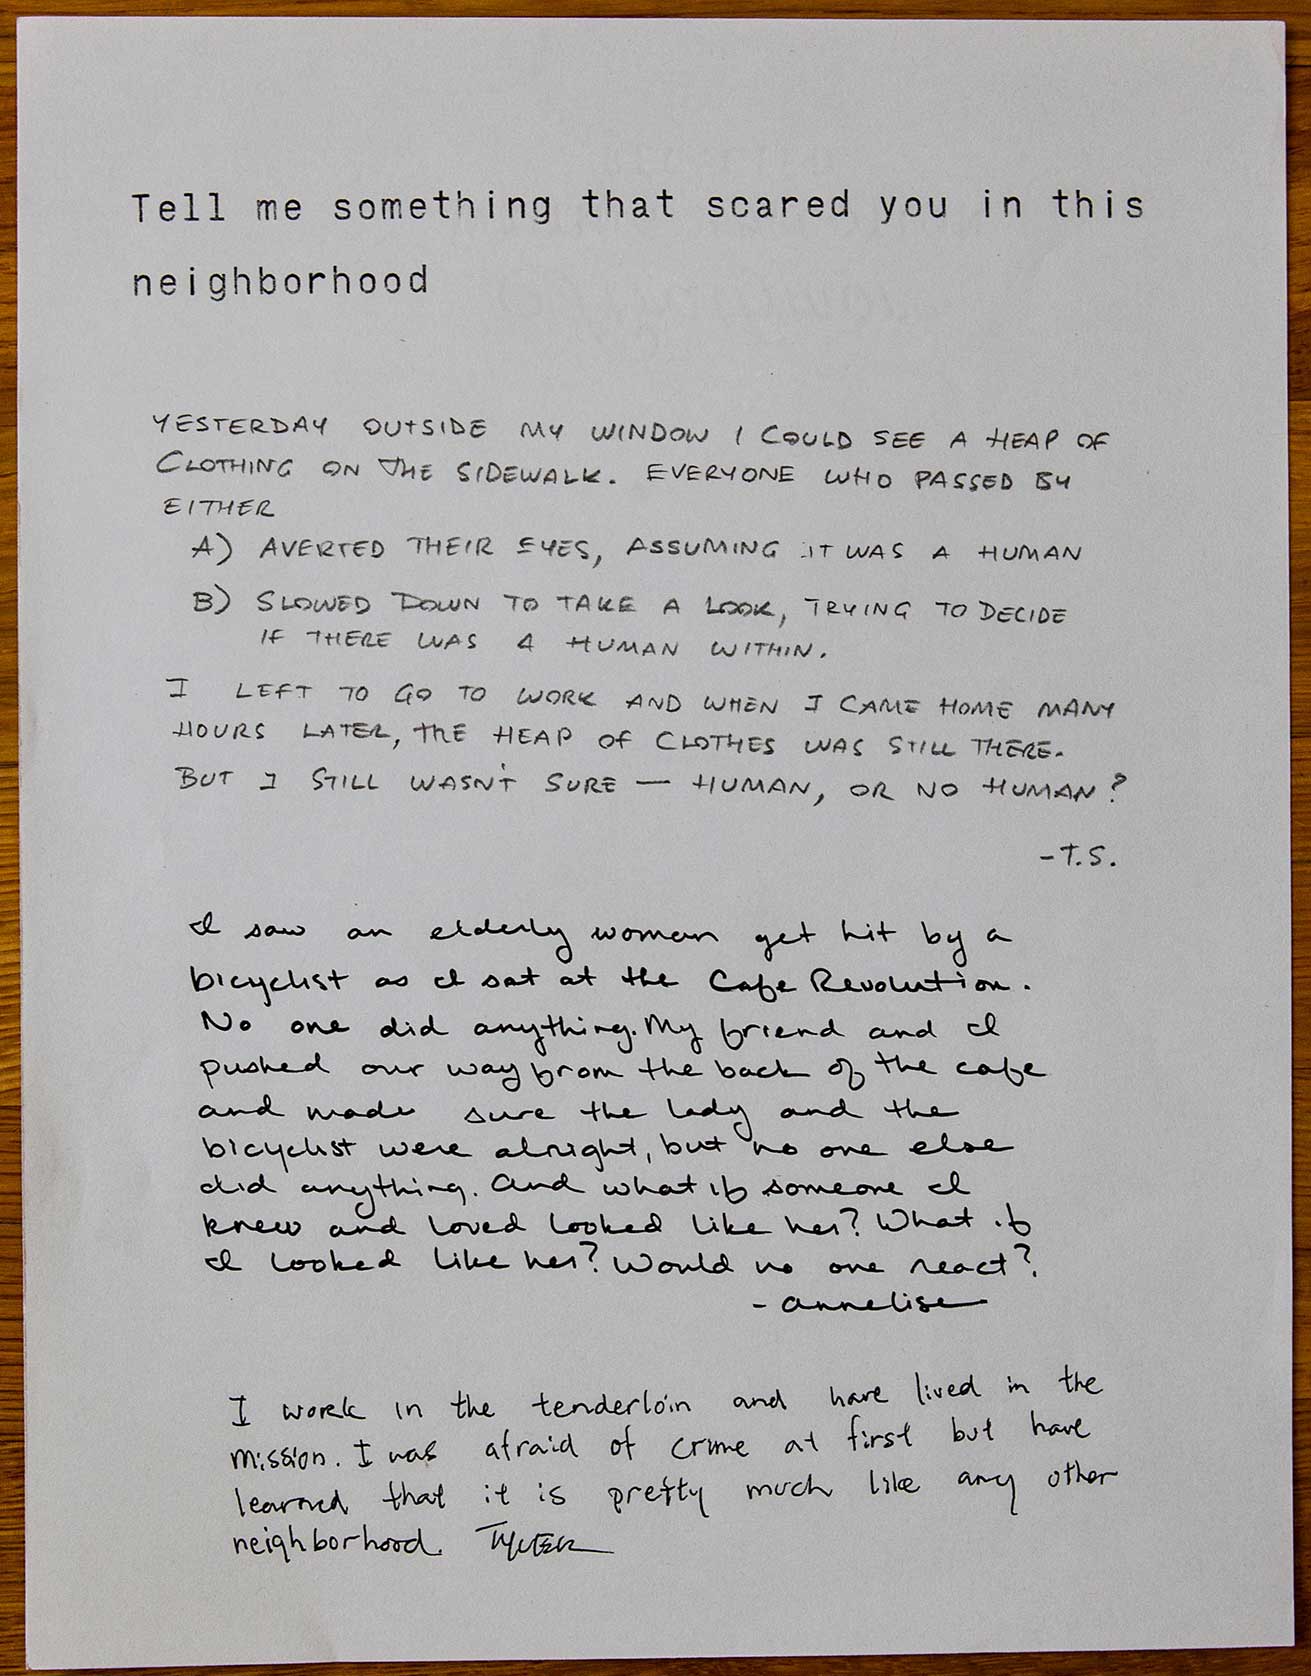 Tell me something that scared you in this
neighborhood
YESTERDAY OUTSIDE MY WINDOW I COULD SEE A HEAP OF
CLOTHING ON THE SIDEWALK. EVERYONE WHO PASSED BY
EITHER
A) AVERTED THEIR EYES, ASSUMING IT WAS A HUMAN
B) SLOWED DOWN TO TAKE A LOOK, TRYING TO DECIDE
IF THERE WAS A HUMAN WITHIN.
I LEFT TO GO TO WORK AND WHEN I CAME HOME MANY
HOURS LATER, THE HEAP OF CLOTHES WAS STILL THERE.
BUT I STILL WASN'T SURE — HUMAN, OR NO HUMAN?
-T.S.
I saw an elderly woman get hit by a
bicyclist as I sat at the Cafe Revolution.
No one did anything. My friend and I
pushed our way from the back of the cafe
and made sure the lady and the
bicyclist were alright, but no one else
did anything. And what if someone I
knew and loved looked like her? What if
I looked like her? Would no one react?
- Annelise
I work in the tenderloin and have lived in the
mission. I was afraid of crime at first but have
learned that it is pretty much like any other
neighborhood. TYLER